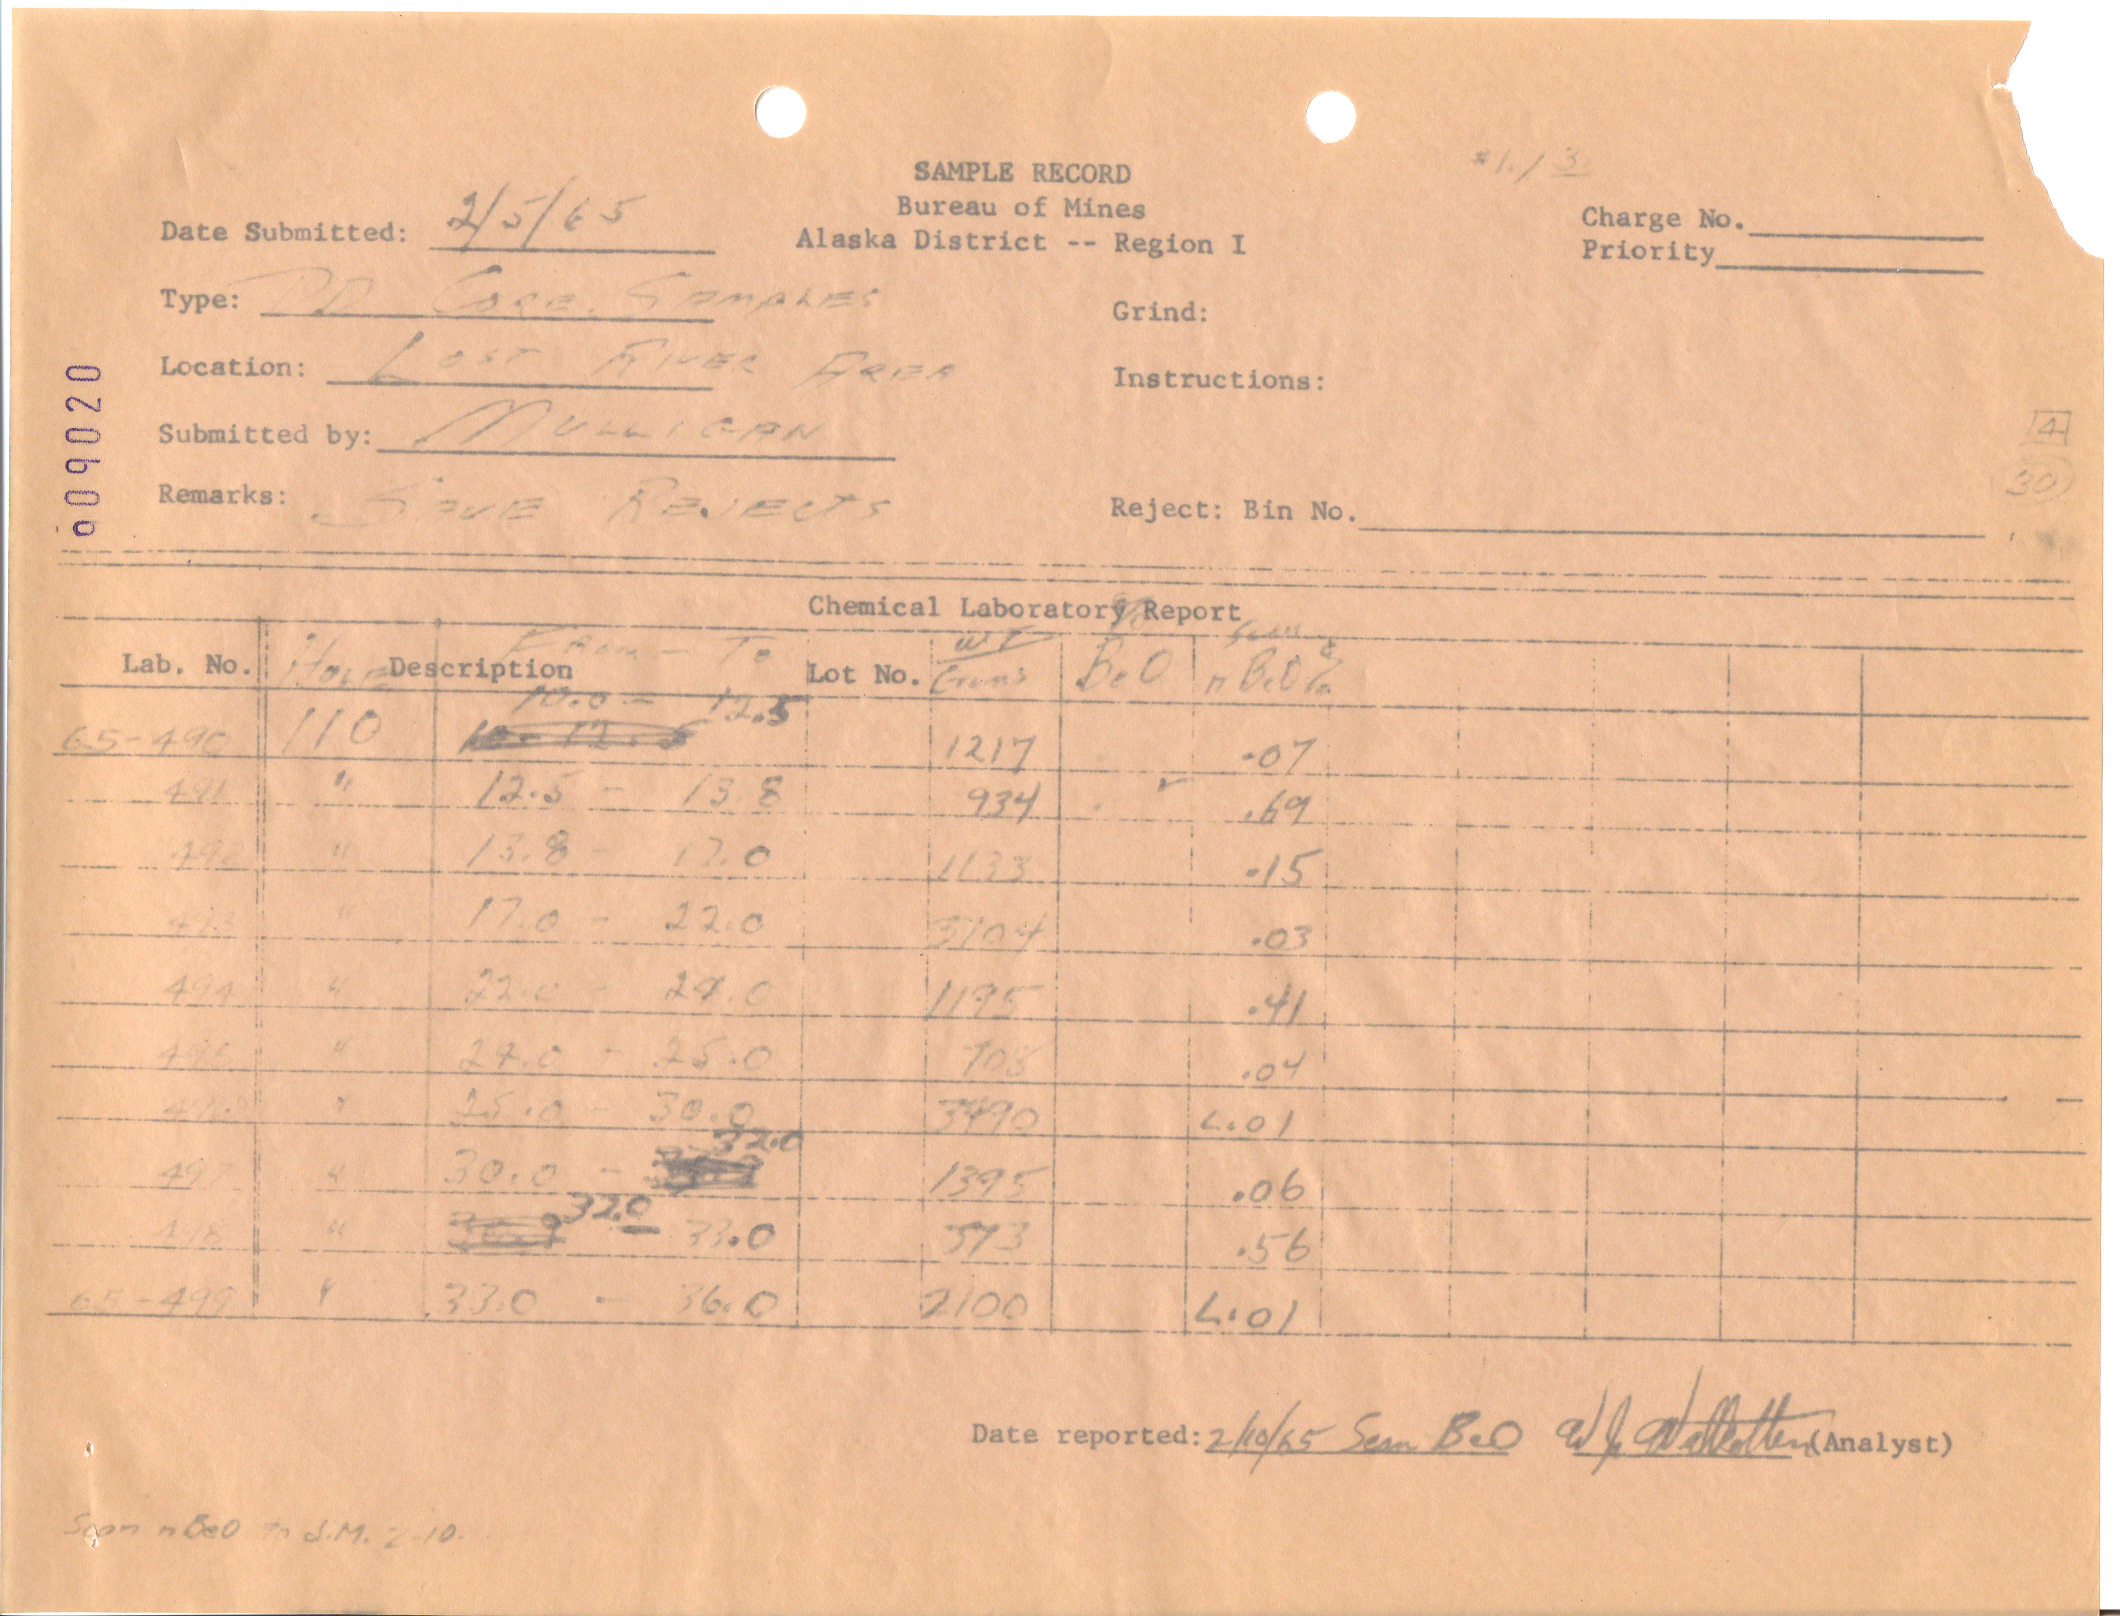 SAMPLE RECORD
Bureau of Mines
Alaska District -- Region I
Charge No.
Priority
Date Submitted: 2/5/65
Type: DD Core Samples
Grind:
Location: Lost River Area
Instructions:
Submitted by: Mulligan
4
30
Remarks: Save Rejects
Reject: Bin No.
609020
Chemical Laboratory Report
Lab. No. Hole Description From - To Lot No. WT Grams % BeO Scan n BeO %
65-490 110 10.0 - 12.5 1217 .07
491 " 12.5 - 13.8 934 .69
492 " 13.8 - 17.0 1133 .15
493 " 17.0 - 22.0 3704 .03
494 " 22.0 - 24.0 1195 .41
495 " 24.0 - 25.0 708 .04
496 " 25.0 - 30.0 3490 L.01
497 " 30.0 - 32.0 1395 .06
498 " 32.0 - 33.0 573 .56
65-499 " 33.0 - 36.0 2100 L.01
Date reported: 2/10/65 Scan BeO (Analyst)
Scan n BeO to J.M. 2-10.